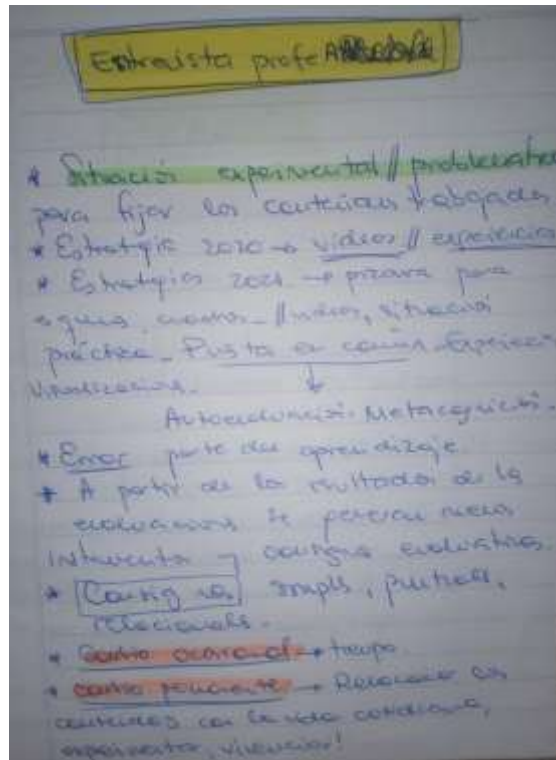 Entrevista profe
* Situación experimental // problemática
para fijar los contenidos trabajados
* Estrategia 2020 → videos // experiencias
* Estrategias 2021 → pizarra para
videos, situación
práctica - Puesta en común - Experiencias
↓
Autoevaluación. Metacognición.
* Error parte del aprendizaje
* A partir de los resultados de la
evaluación se piensan nuevos
instrumentos y consignas evaluativas.
* Consignas simples,
relacionales.
* → tiempo
* → Relacionar los
contenidos con la vida cotidiana,
experimentar, vivenciar!